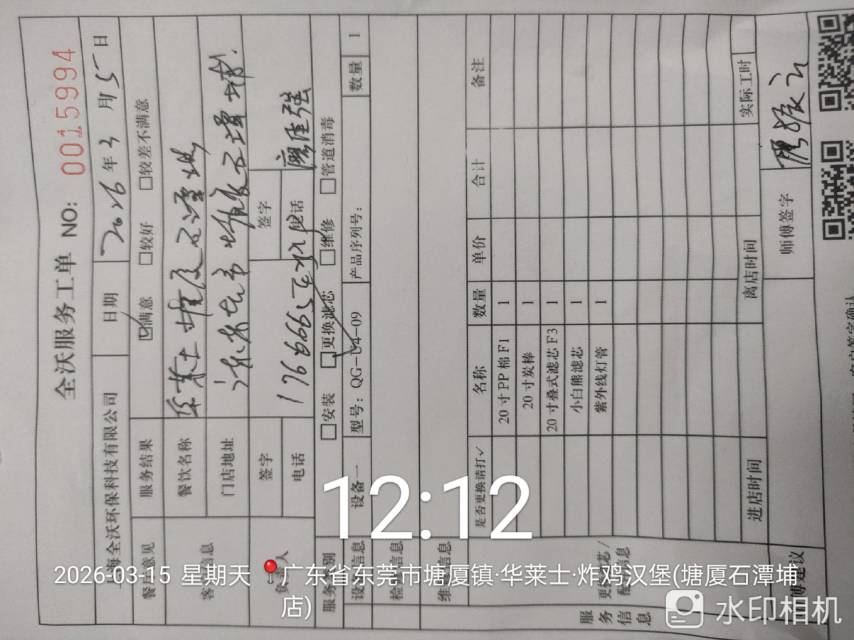 全沃服务工单 NO: 0015994
上海全沃环保科技有限公司 日期 2026年3月15日
餐饮意见 服务结果 ☑满意 □较好 □较差不满意
客户信息 餐饮名称 华莱士塘厦石潭埔
门店地址
负责人 签字 签字
电话 电话
服务类别 □安装 □更换滤芯 □维修 □管道消毒
设备信息 设备一 型号: QG-U4-09 产品序列号: 数量 1
检测信息
维修信息
是否更换请打✓ 名称 数量 单价 合计 备注
20寸PP棉F1 1
20寸炭棒 1
20寸叠式滤芯F3 1
小白熊滤芯 1
紫外线灯管 1
更换滤芯/配件信息
服务信息
进店时间 离店时间 实际工时
师傅建议 师傅签字
12:12
2026-03-15 星期天 广东省东莞市塘厦镇·华莱士·炸鸡汉堡(塘厦石潭埔店)
水印相机